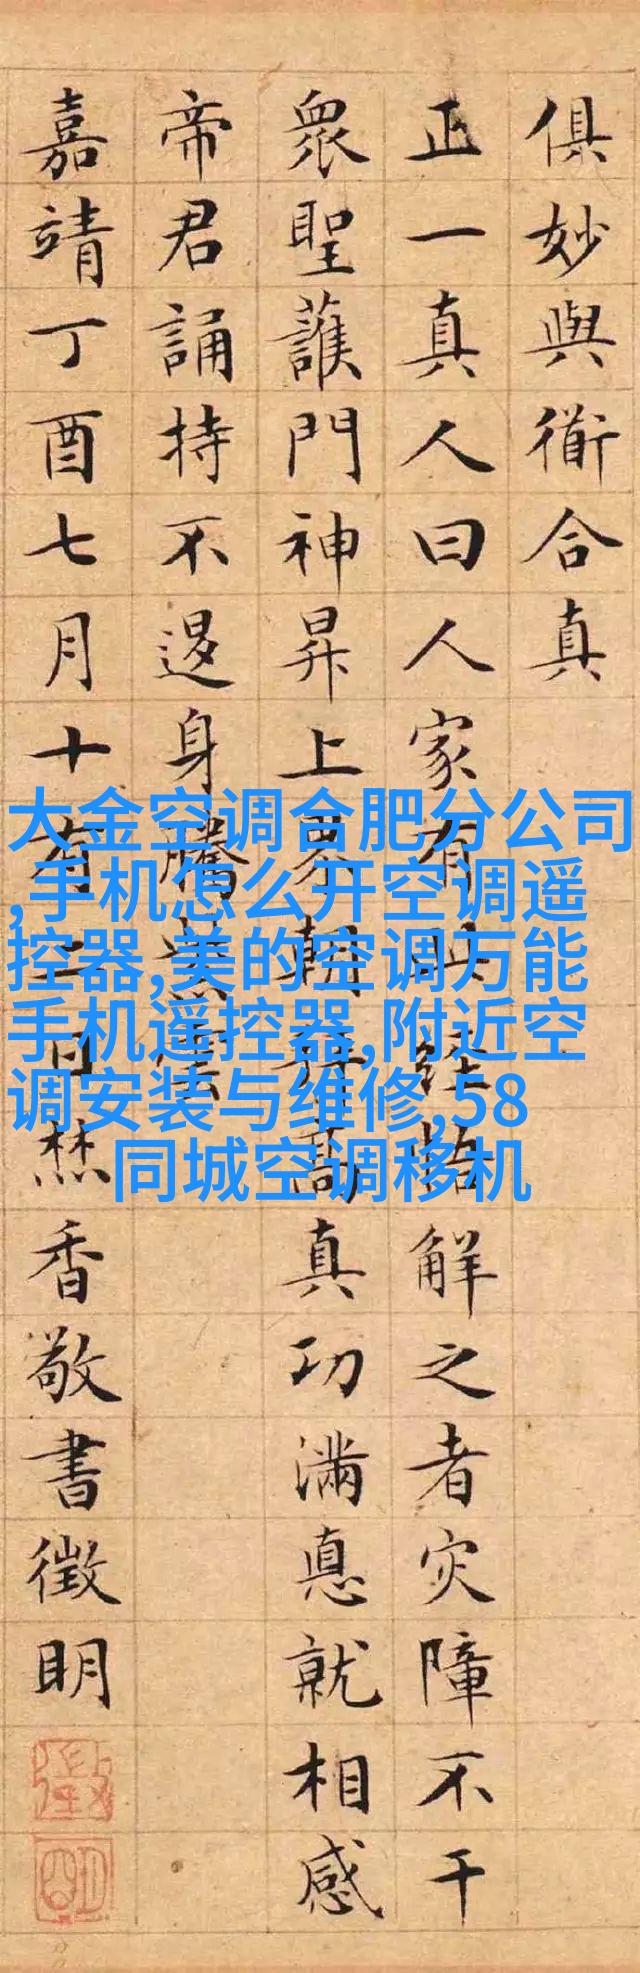 俱妙與衜合真
正一真人曰人家有此經悟解之者灾障不干
衆聖護門神昇上界朝高真功滿悳就相感
帝君誦持不退身騰紫雲
嘉靖丁酉七月十有日焚香敬書徵明
大金空调合肥分公司
,手机怎么开空调遥
控器,美的空调万能
手机遥控器,附近空
调安装与维修,58
同城空调移机